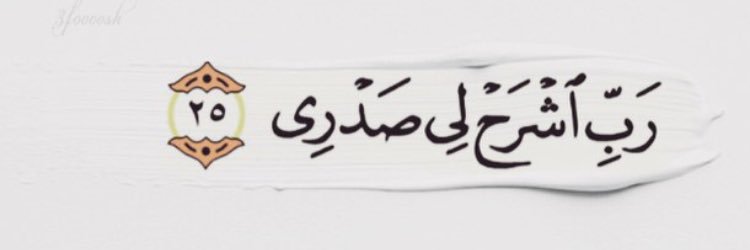 3foooosh
رَبِّ ٱشْرَحْ لِى صَدْرِى ٢٥